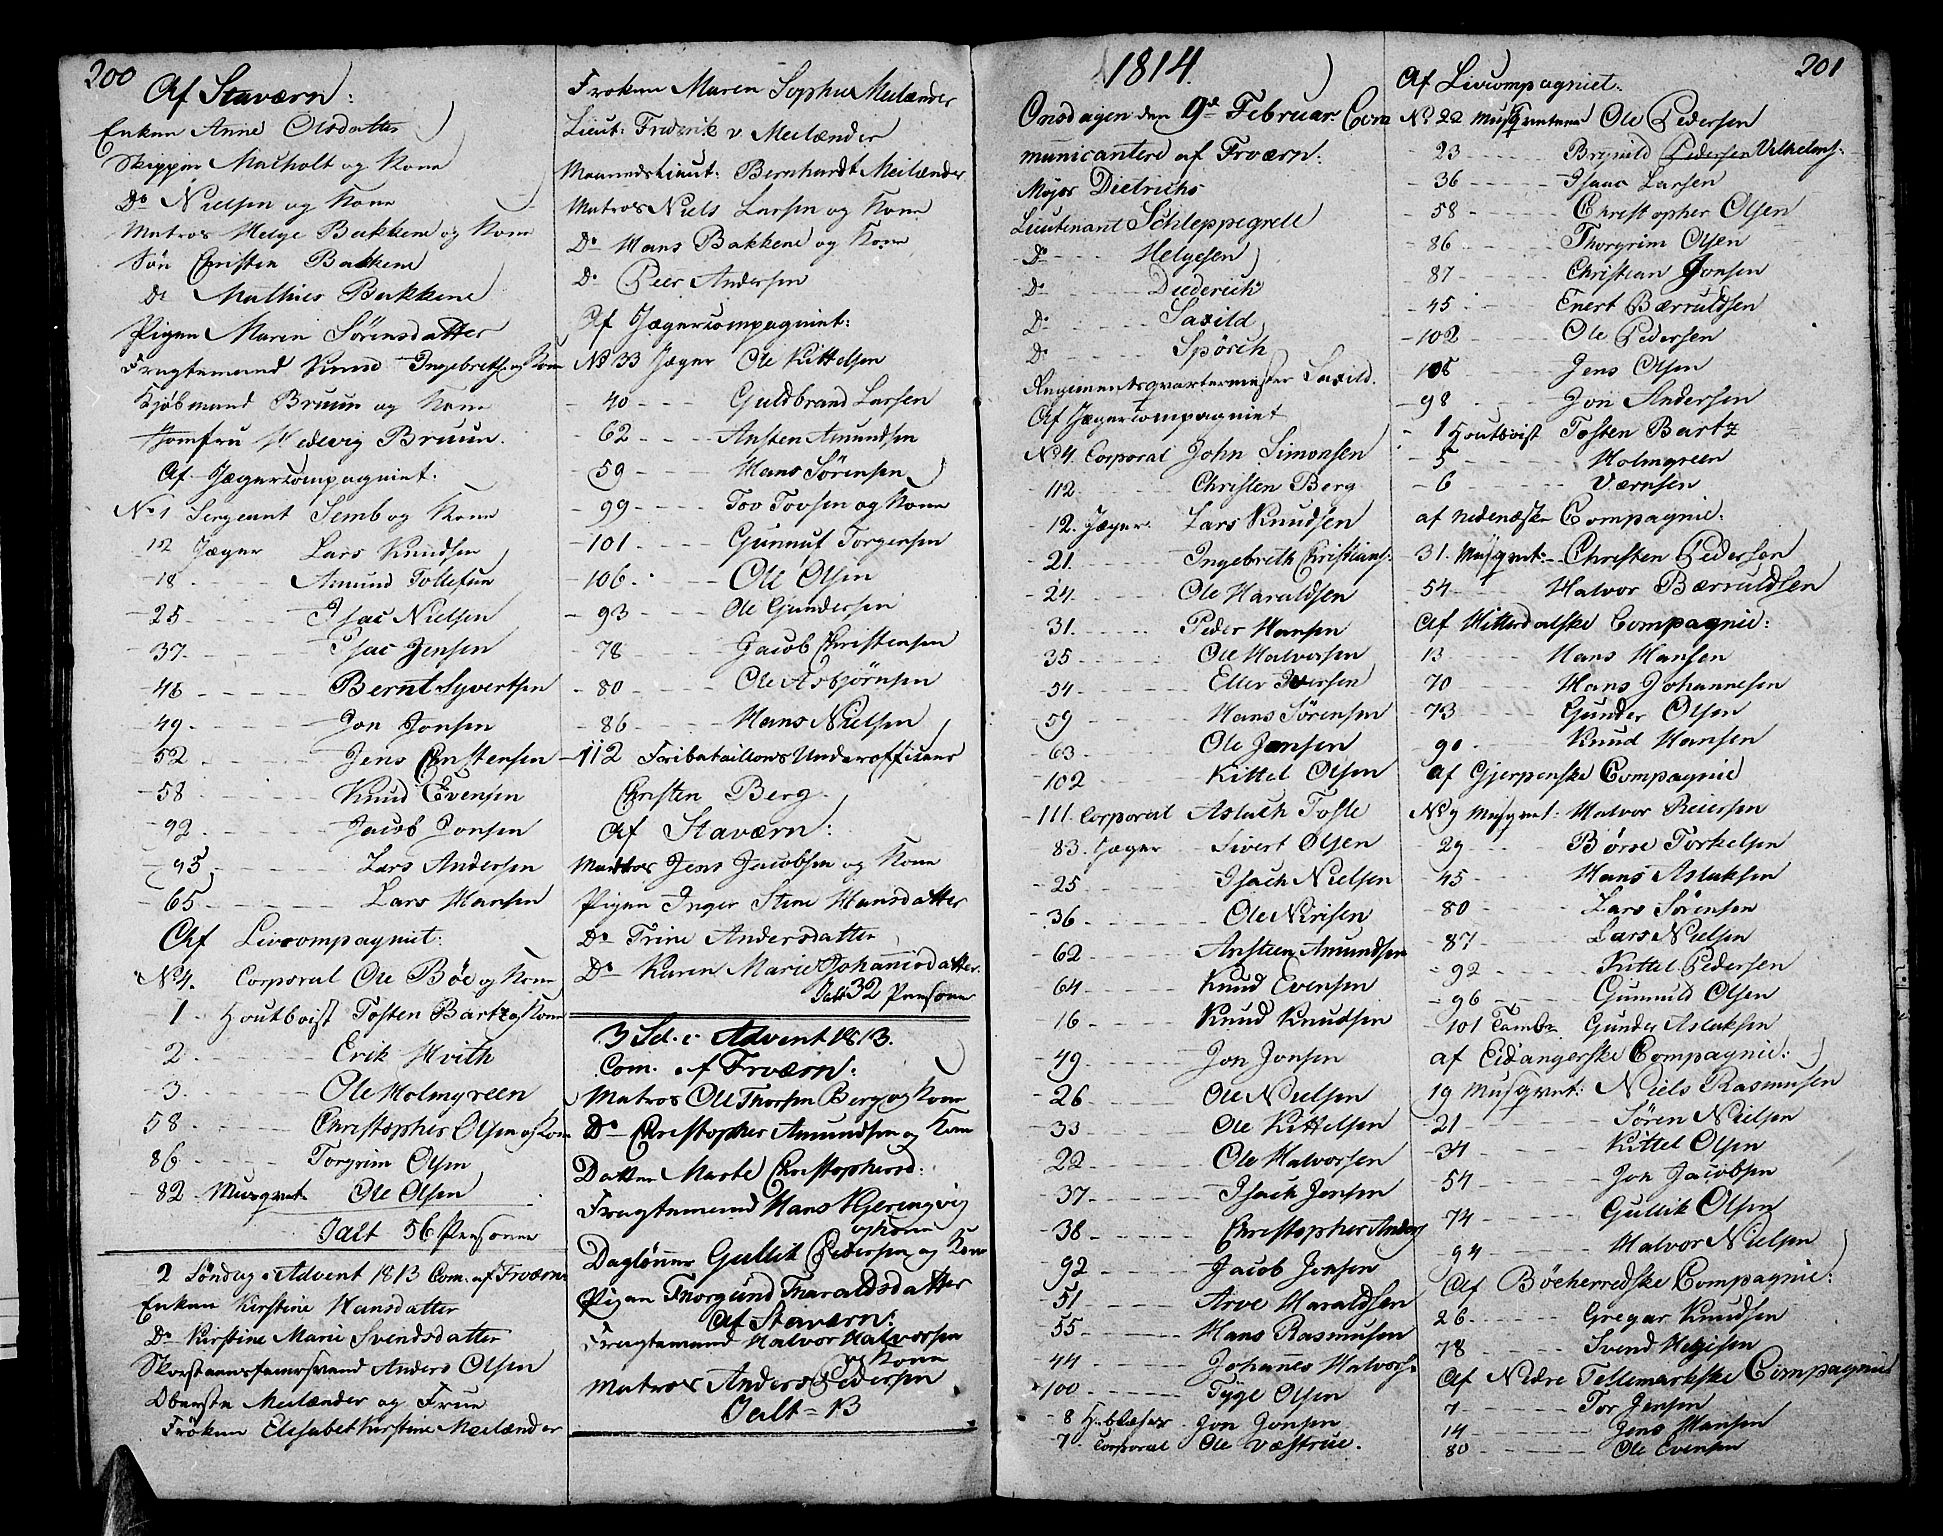 200
Af Staværn:
Enken Anne Olsdatter
Skipper Malholt og Kone
Do Nielsen og Kone
Matros Helge Bakkene og Kone
Søn Christen Bakkene
Do Mathies Bakkene
Pigen Maren Sørensdatter
Fragtemand Knud Ingebrethsen og Kone
Kjøbmand Bruun og Kone
Jomfru Hedevig Bruun.
Af Jægercompagniet:
No 1 Sergeant Semb og Kone
12 Jæger Lars Knudsen
18 Amund Tollefsen
25 Isac Nielsen
37 Isac Jensen
46 Bernt Syvertsen
49 Jon Jonsen
52 Jens Christensen
58 Knud Evensen
92 Jacob Jonsen
95 Lars Andersen
65 Lars Hansen
Af Livcompagniet:
No 4. Corporal Ole Böe og Kone
1 Houtboist Tosten Bartz og Kone
2 Erik Hvith
3 Ole Holmgreen
58 Christopher Olsen og Kone
86 Torgrim Olsen
82 Musqvet: Ole Olsen
Ialt 56 Personer
2 Søndag i Advent 1813 Com. af Fr.værn
Enken Kirstine Hansdatter
Do Kirstine Marie Svendsdatter
Skorstensfeiersvend Anders Olsen
Oberste Meilænder og Frue
Frøken Elisabet Kirstine Meilænder
Frøken Maren Sophie Meilænder
Lieut: Frederik v Meilænder
Maanedslieut: Bernhardt Meilænder
Matros Niels Larsen og Kone
Do Hans Bakkene og Kone
Do Peer Andersen
Af Jægercompagniet:
No 33 Jæger Ole Kittelsen
40 Guldbrand Larsen
62 Ansten Amundsen
59 Hans Sørensen
99 Tov Tovsen og Kone
101 Gunnut Torgersen
106 Ole Olsen
93 Ole Gundersen
78 Jacob Christensen
80 Ole Asbjørnsen
86 Hans Nielsen
112 Fribataillons Underofficeer
Christen Berg
Af Staværn:
Matros Jens Jacobsen og Kone
Pigen Inger Stine Hansdatter
Do Trine Andersdatter
Do Karen Marie Johannisdatter
Ialt 32 Personer
3 Sd. i Advent 1813.
Com. af Fr.værn:
Matros Ole Thorsen Berg og Kone
Do Christopher Amundsen og Kone
Datter Marte Christophersd:
Fragtemand Hans Kjeringvig
og Kone
Dagløner Gullik Pedersen og Kone
Pigen Thorgund Tharaldsdatter
Af Staværn:
Fragtemand Halvor Halvorsen
og Kone
Matros Anders Pedersen
Ialt = 13
1814.
Onsdagen den 9de Februar Com
municantere af Fr.værn:
Major Dietrichs
Lieutenant Schleppegrell
Do Helgesen
Do Diederich
Do Saxild
Do Spörck
Regimentsqvartermester Saxild.
Af Jægercompagniet
No 4. Corporal John Simonsen
112 Christen Berg
12. Jæger Lars Knudsen
21. Ingebreth Christians:
24. Ole Haraldsen
31. Peder Hansen
35 Ole Halvorsen
54 Eller Iversen
59 Hans Sørensen
63 Ole Jonsen
102 Kittel Olsen
111 Corporal Aslach Tofte
83. Jæger Sivert Olsen
25 Isach Nielsen
36 Ole Nirisen
62 Ansteen Amundsen
64 Knud Evensen
16 Knud Knudsen
49 Jon Jonsen
26 Ole Nielsen
33 Ole Kittelsen
22 Ole Halvorsen
37 Isach Jensen
38 Christopher Anders
92 Jacob Jonsen
51 Arve Haraldsen
55 Hans Rasmusen
44 Johannes Halvors:
100 Tyge Olsen
8 H:blæser Jon Jonsen
7. Corporal Ole Væstrue.
201
Af Livcompagniet:
No 22 Musqveteer Ole Pedersen
23 Brynild Pedersen Vilhelms:
36 Isaac Larsen
58 Christopher Olsen
86 Thorgrim Olsen
87 Christian Jonsen
45 Enert Bærruldsen
102 Ole Pedersen
105 Jens Olsen
98 Jon Andersen
1 Houtboist Tosten Bartz
5 Holmgreen
6 Værnsen
af Nedenæske Compagnie:
31. Musqvet: Christen Pedersen
54 Halvor Bærruldsen
Af Hitterdalske Compagnie:
13 Hans Hansen
70 Hans Johannesen
73 Gunder Olsen
90 Knud Hansen
af Gjerpenske Compagnie
No 9 Musqvet: Halvor Reiersen
29 Börre Torkelsen
45 Hans Aslaksen
80 Lars Sørensen
87 Lars Nielsen
92 Kittel Pedersen
96 Gunnuld Olsen
101 Tambr Gunder Aslaksen
af Eidangerske Compagnie:
19 Musqvet: Niels Rasmusen
21 Sören Nielsen
34 Kittel Olsen
54 Jon Jacobsen
74 Gullik Olsen
94 Halvor Nielsen
Af Böeherredske Compagnie:
26 Gregar Knudsen
78 Svend Helgesen
Af Nedre Tellemarkske Compagnie
7 Tor Jensen
14 Jens Hansen
80 Ole Evensen